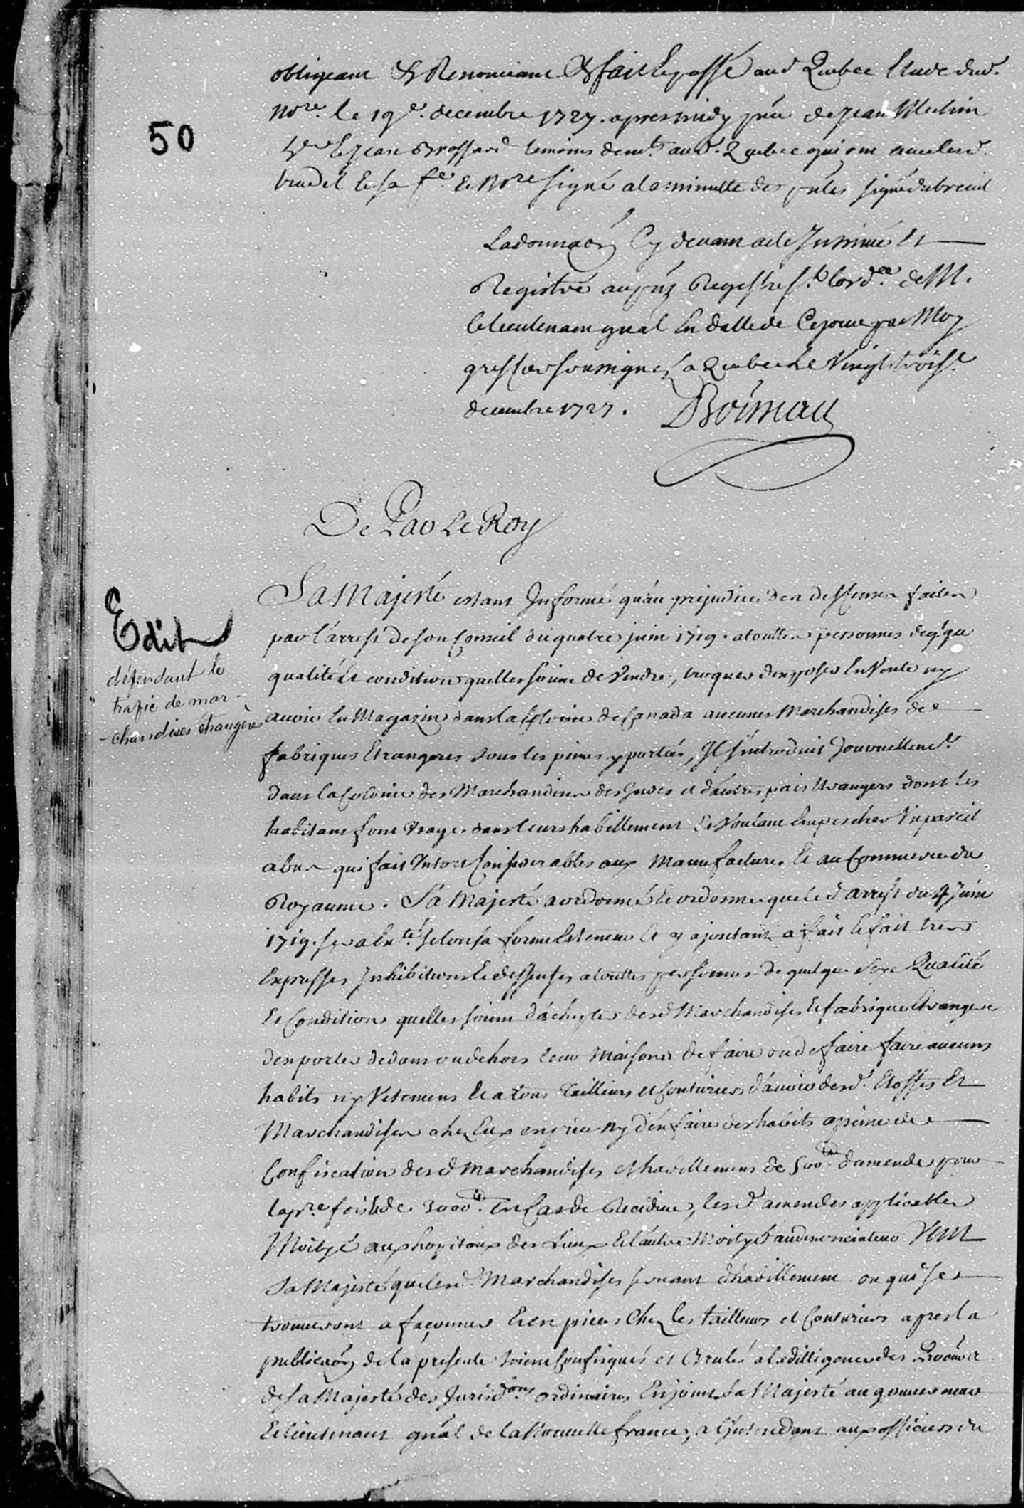 obligeant & Renonceant &c fait & passé aud Quebec Etude dud.
Nore. le 19e. decembre 1727. apres midy pnce de Jean Melim
Sr & Jean Brossard temoins demts aud. Quebec qui ont avec led.
trudel & sa fe. & Nore signé a la minutte des pntes signé dubreuil
La donnaōn Cy devant a eté Insinué Et
Registré au pnt Registre st. lordce. de M.
le lieutenam gnal En datte de Ce jour par Moy
greffier soussigné A Quebec Le Vingt trois e
decembre 1727. Boisseau
50
De Par Le Roy
Edit
défendant le
trafic de mar-
-chandises étrangères
Sa Majesté estant Informé qu'au prejudice des deffenses faites
par l'arrest de son Conseil du quatre juin 1719. a touttes personnes de qque
qualité & condition quelles soient de Vendre, troquer d'exposer En Vente ny
avoir En Magazin dans la Colonie de Canada aucunes Marchandises de
fabriques Etrangeres sous les peines y portées, Il s'introduit Journellemt.
dans la Colonie des Marchandises des Indes et d'autres pais Etrangers dont les
habitans font Usage dans leurs habillement Et Voulant Empescher Un pareil
abus qui fait Un tort Considerables aux Manufactures Et au Commerce du
Royaume. Sa Majesté a ordonné & ordonne que led arrest du 4 Juin
1719. sera Exté. selon sa forme & teneur Et y ajoutant a fait & fait tres
Expresses Inhibitions & deffenses a touttes personnes de quelque Sexe Qualité
Et Condition quelles soient d'achepter desd Marchandises de fabrique Etrangere
d'en porter dedans ou dehors leur Maisons de faire ou de faire faire aucuns
habits ny Vetemens Et a tous Tailleurs et Couturiers d'avoir desd. Etoffes Et
Marchandises chez Eux ny d'en faire des habits a peine de
Confiscation desd Marchandises et habillemens de 500ll d'amende pour
la pre fois & de 3000ll En Cas de Recidive, lesd amendes applicables
Moityé aux hopitaux des Lieux Et l'autre Moityé au denonciateur Veut
Sa Majesté que lesd Marchandises servant d'habillement ou qui se
trouveront a façonner & en pieces Chez les tailleurs et Couturiers apres la
publicaōn de la presente soient Confisqués et Brulés a la dilligence des Procurs
de Sa Majesté des Jurisdons ordinaires Enjoint Sa Majesté au gouverneur
& lieutenant gnal de la Nouvelle france, a l'Intendant aux officiers du